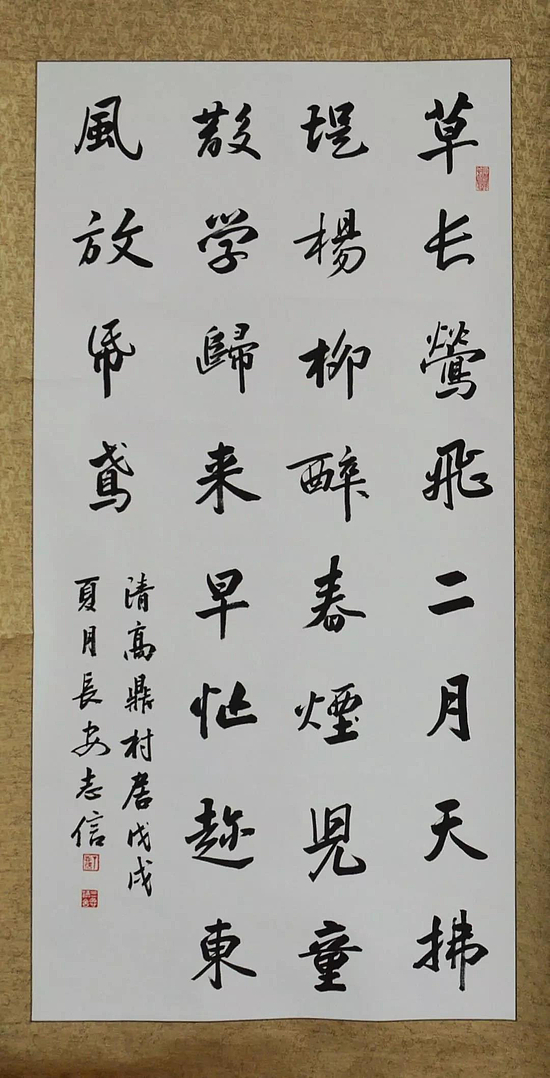 草长鶯飛二月天拂
堤楊柳醉春煙児童
散学歸来早忙趂東
風放帋鳶
清高鼎村居戊戌
夏月長安志信